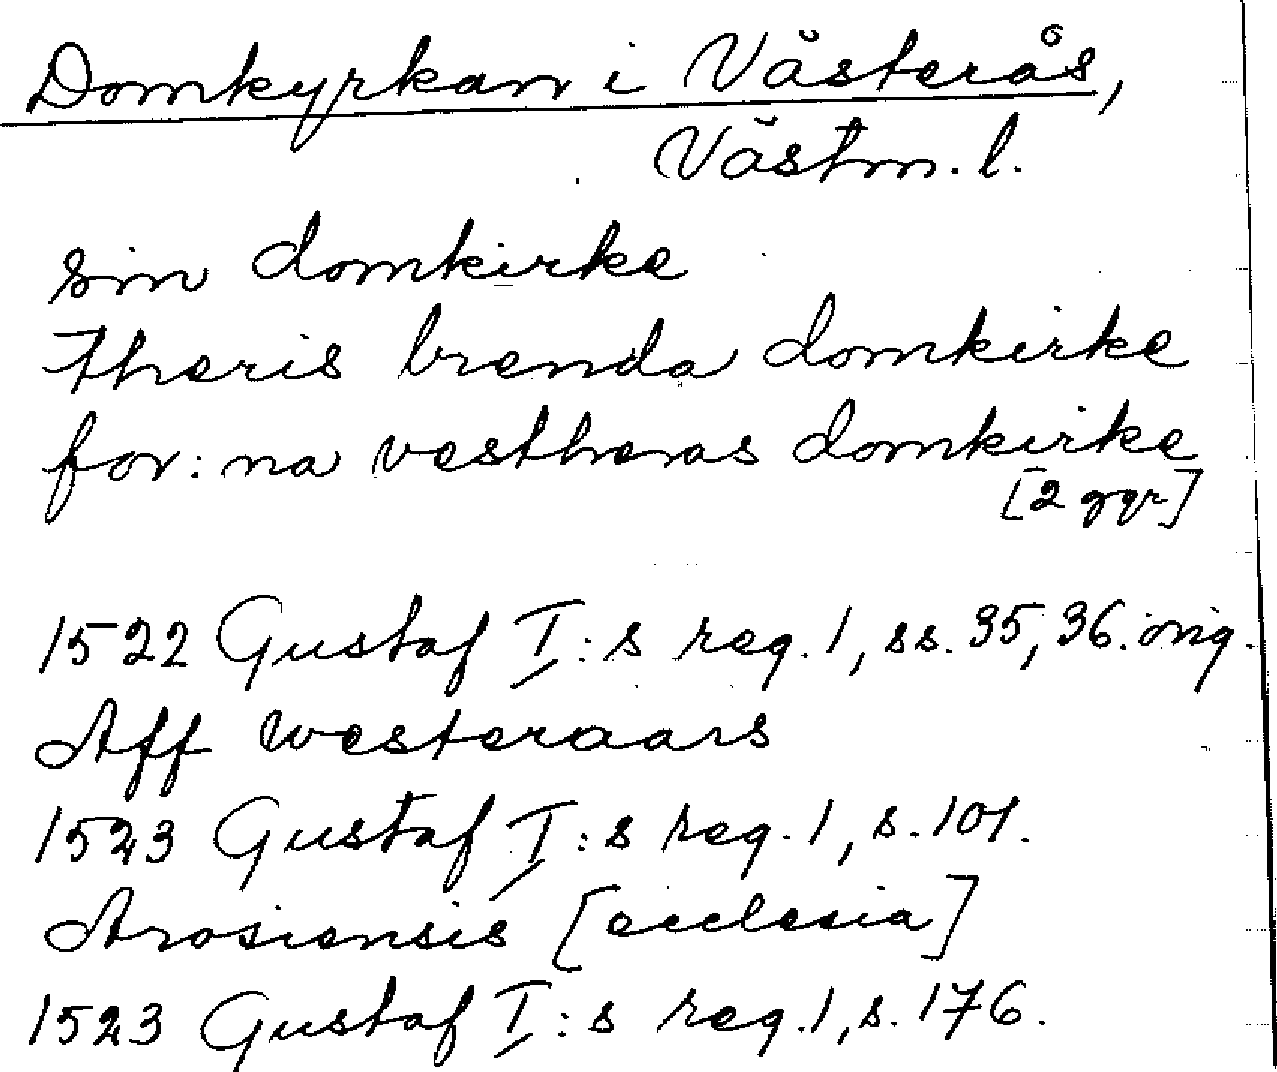 Domkyrkan i Västerås,
Västm. l.
sin domkirke
theris brenda domkirke
for: na vestheras domkirke
[2 ggr]
1522 Gustaf I:s reg. 1, ss. 35, 36. orig.
Aff westeraars
1523 Gustaf I:s reg. 1, s. 101.
Arosiensis [ecclesia]
1523 Gustaf I:s reg. 1, s. 176.